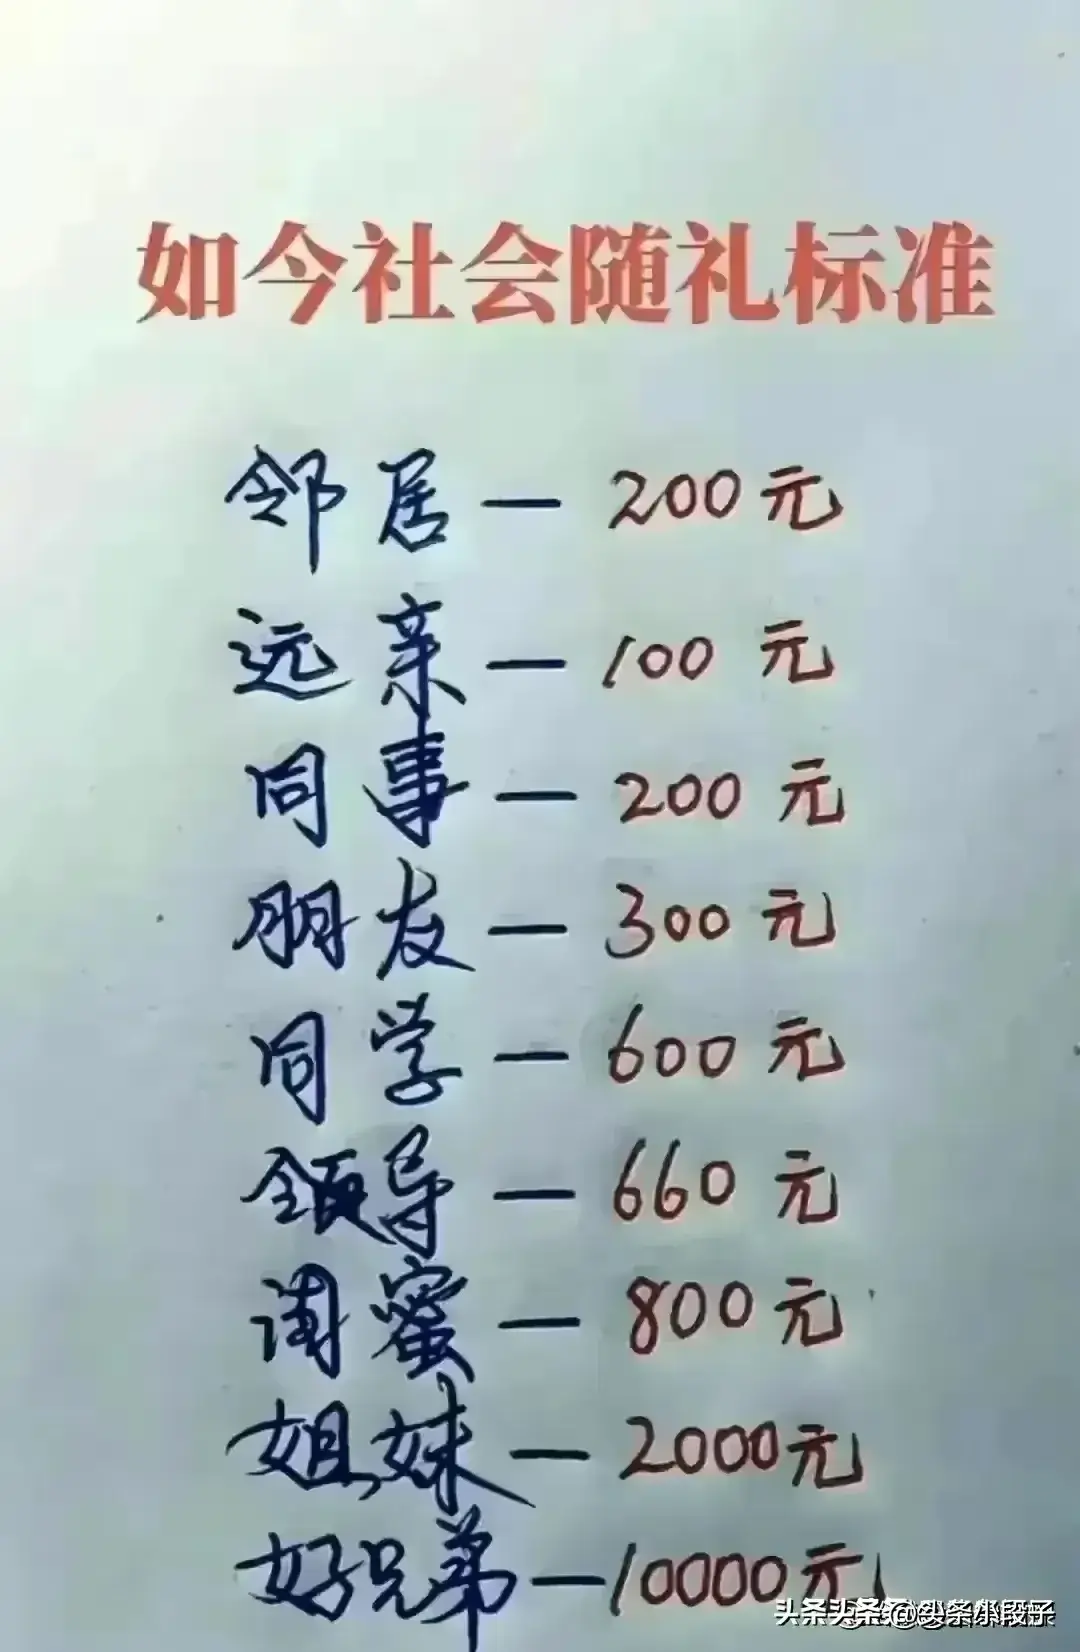 如今社会随礼标准
邻居—200元
远亲—100元
同事—200元
朋友—300元
同学—600元
领导—660元
闺蜜—800元
姐妹—2000元
好兄弟—10000元
@头条小段子